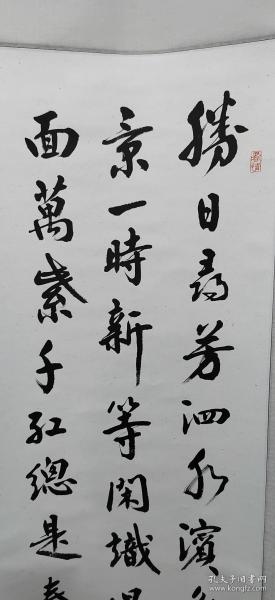 勝日尋芳泗水濱
景一時新等閑識
面萬紫千紅總是春
孔夫子旧书网